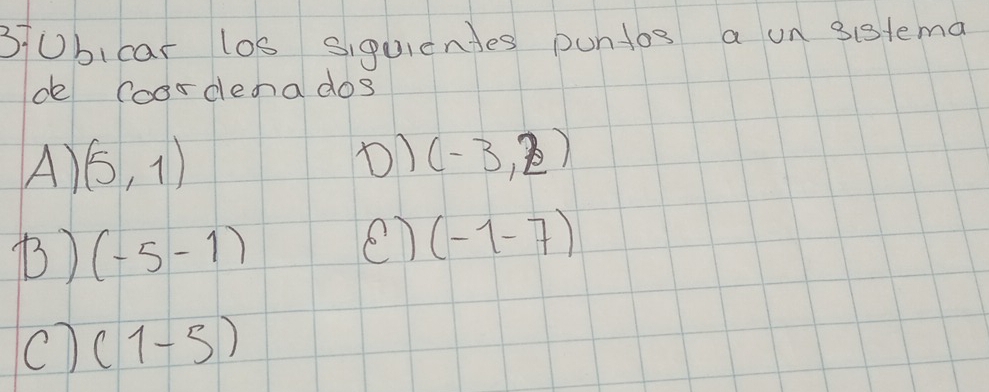 3- Ubicar los siguientes puntos a un sistema
de coordenados
A) (5, 1) D) (-3, 2)
B) (-5-1) E) (-1-7)
C) (1-5)